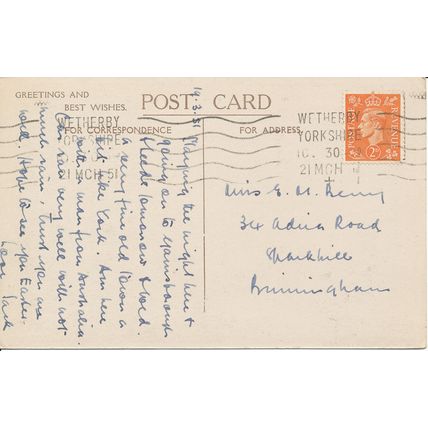 GREETINGS AND
BEST WISHES.
POST CARD
FOR CORRESPONDENCE
FOR ADDRESS
WETHERBY
YORKSHIRE
30
21 MCH 51
WETHERBY
YORKSHIRE
10. 30
21 MCH
POSTAGE
REVENUE
2D
19.3.51
Staying the night here &
going on to Gainsborough
tomorrow &
a very fine old town a
bit like York. Am here
with a man from Australia.
Car ran very well with not
much rain, trust you are
well. Hope to see you Easter
Love Jack
Miss E. M.
34 Adria Road
Sparkhill
Birmingham